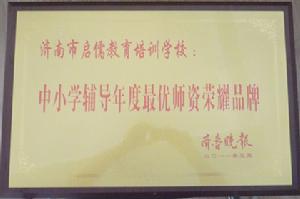 济南市启儒教育培训学校：
中小学辅导年度最优师资荣耀品牌
齐鲁晚报
二〇一一年五月